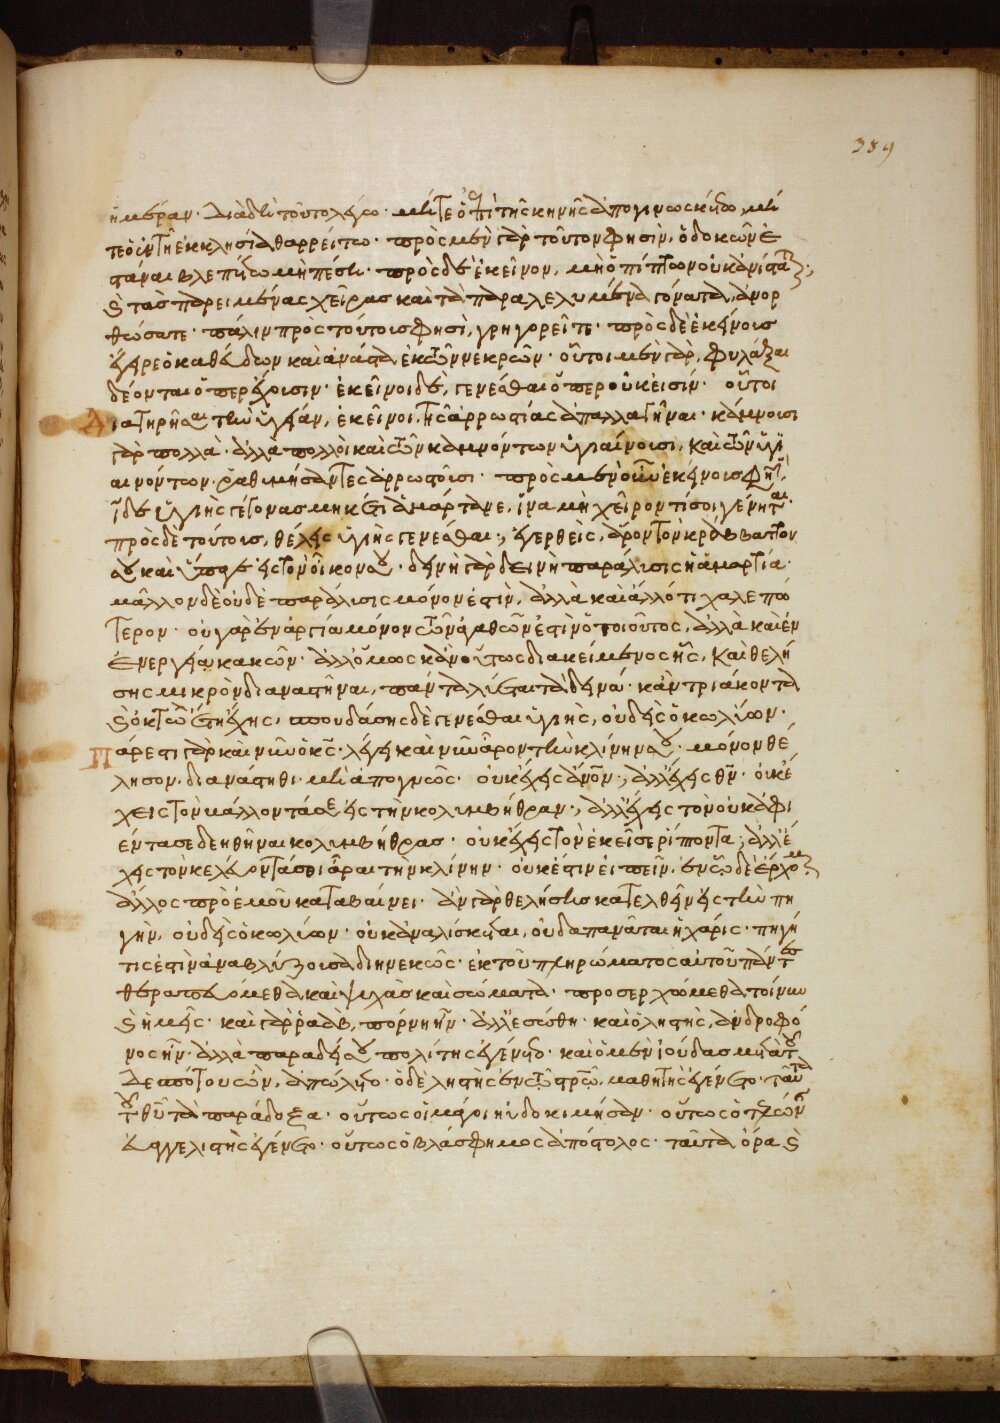 389
ἡμέραν· διὰ δὴ τοῦτο λέγω· μήτε ὁ ἐπὶ τῆς σκηνῆς ἀπογινωσκέτω, μή
τε ὁ ἐν τῇ ἐκκλησία θαρρείτω· πρὸς μὲν γὰρ τοῦτον φησὶν, ὁ δοκῶν ἑ
στάναι βλεπέτω μὴ πέσῃ· πρὸς δὲ ἐκεῖνον, μὴ ὁ πίπτων οὐκ ἀνίσταται;
καὶ τὰς παρειμένας χεῖρας καὶ τὰ παραλελυμένα γόνατα, ἀνορ
θώσατε· πάλιν πρὸς τούτοις φησὶ, γρηγορεῖτε· πρὸς δὲ ἐκείνοις
ἔγειρε ὁ καθεύδων καὶ ἀνάστα ἐκ τῶν νεκρῶν· οὗτοι μὲν γὰρ, φυλάξαι
δέονται ὅπερ ἔχουσιν· ἐκεῖνοι δὲ, γενέσθαι ὅπερ οὐκ εἰσίν· οὗτοι
διατηρῆσαι τὴν ὑγείαν, ἐκεῖνοι τῆς ἀρρωστίας ἀπαλλαγῆναι· κάμνουσι
γὰρ πολλὰ· ἀλλὰ πολλοὶ καὶ τῶν καμνόντων ὑγιαίνουσι, καὶ τῶν ὑγι
αινόντων ῥαθυμήσαντες ἀρρωστοῦσι· πρὸς μὲν οὖν ἐκείνοις φησὶν,
ἴδε ὑγιὴς γέγονας μηκέτι ἁμάρτανε, ἵνα μὴ χεῖρον τί σοι γένηται·
πρὸς δὲ τούτοις, θέλεις ὑγιὴς γενέσθαι; ἐγερθεὶς, ἆρον τὸν κράββατον
σου καὶ ὕπαγε εἰς τὸν οἶκον σου· δεινὴ γὰρ δεινὴ παράλυσις ἡ ἁμαρτία·
μᾶλλον δὲ οὐδὲ παράλυσις μόνον ἐστὶν, ἀλλὰ καὶ ἄλλό τι χαλεπώ
τερον· οὐ γὰρ ἐν ἀργία μόνον τῶν ἀγαθῶν ἐστὶν ὁ τοιοῦτος, ἀλλὰ καὶ ἐν
ἐνεργεία κακῶν· ἀλλ' ὅμως κἂν οὕτως διακείμενος ᾖς, καὶ θελή
σης μικρὸν διαναστῆναι, πάντα λύεται τὰ δεινά· κἂν τριάκοντα
καὶ ὀκτὼ ἔτη ἔχης, σπουδάσης δὲ γενέσθαι ὑγιὴς, οὐδεὶς ὁ κωλύων·
Πάρεστι γὰρ καὶ νῦν ὁ κς· λέγει καὶ νῦν ἆρον τὴν κλίνην σου· μόνον θέ
λησον διανάστηθι· μὴ ἀπογνῶς· οὐκ ἔχεις ἄνον; ἀλλ' ἔχεις θν· οὐκ ἔ
χεις τὸν βάλλοντά σε εἰς τὴν κολυμβήθραν; ἀλλ' ἔχεις τὸν οὐκ ἀφι
έντα σε δεηθῆναι κολυμβήθρας· οὐκ ἔχεις τὸν ἐκεῖ σε ῥίποντα; ἀλλ' ἔ
χεις τὸν κελεύοντά σοι ἆραι τὴν κλίνην· οὐκ ἔστιν εἰπεῖν, ἐν ᾧ δὲ ἔρχομαι
ἄλλος πρὸ ἐμοῦ καταβαίνει· ἂν γὰρ θελήσης κατελθεῖν εἰς τὴν πη
γὴν, οὐδεὶς ὁ κωλύων· οὐκ ἀναλίσκεται, οὐ δαπανᾶται ἡ χάρις· πηγή
τις ἐστὶν ἀναβλύζουσα διηνεκῶς· ἐκ τοῦ πληρώματος αὐτοῦ πάντες
θεραπευόμεθα καὶ ψυχὰς καὶ σώματα· προσερχώμεθα τοίνυν
καὶ ἡμεῖς· καὶ γὰρ ῥαὰβ, πόρνη ἦν· ἀλλ' ἐσώθη· καὶ ὁ ληστὴς, ἀνδροφό
νος ἦν· ἀλλὰ παραδείσου πολίτης ἐγένετο· καὶ ὁ μὲν ἰούδας μετὰ τοῦ
δεσπότου ὢν, ἀπώλετο· ὁ δὲ ληστὴς ἐν τῷ στρῶ, μαθητὴς ἐγένετο· ταῦτα
τοῦ θυ τὰ παράδοξα· οὕτως οἱ μάγοι ηὐδοκίμησαν· οὕτως ὁ τελώνης
εὐαγγελιστὴς ἐγένετο· οὕτως ὁ βλάσφημος ἀπόστολος· ταῦτα ὅρα καὶ